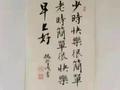 少時快樂很簡單
老時簡單很快樂
早上好